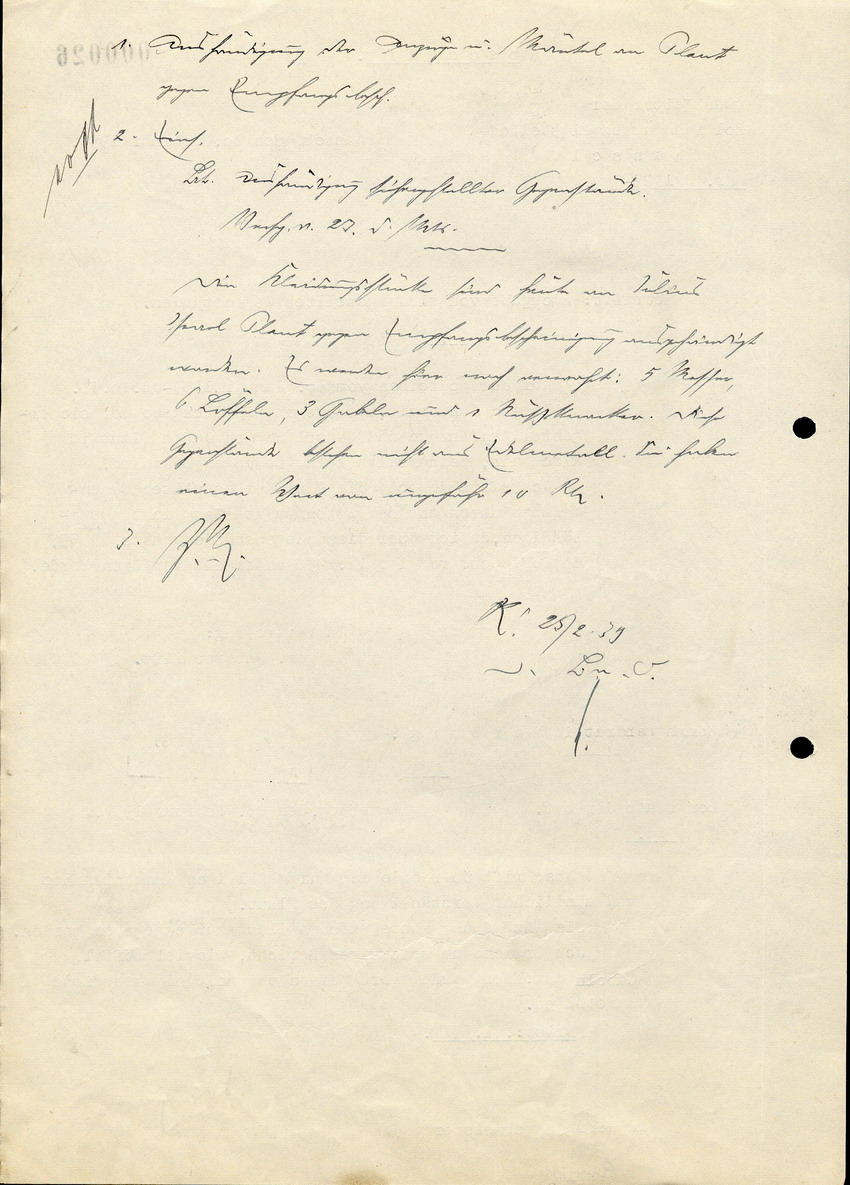 1. Aushändigung der Anzüge u. Mäntel an Plaut
gegen Empfangsbesch.
2. Eins.
Bt. Aushändigung sichergestellter Gegenstände.
Verfg. v. 27. d. Mts.
Die Kleidungsstücke sind heute an Julius
Israel Plaut gegen Empfangsbescheinigung ausgehändigt
worden. Es werden hier noch verwahrt: 5 Messer,
6 Löffeln, 3 Gabeln und 1 Nußknacker. Diese
Gegenstände bestehen nicht aus Edelmetall. Sie haben
einen Wert von ungefähr 10 RM.
3.
K. 28/2.39